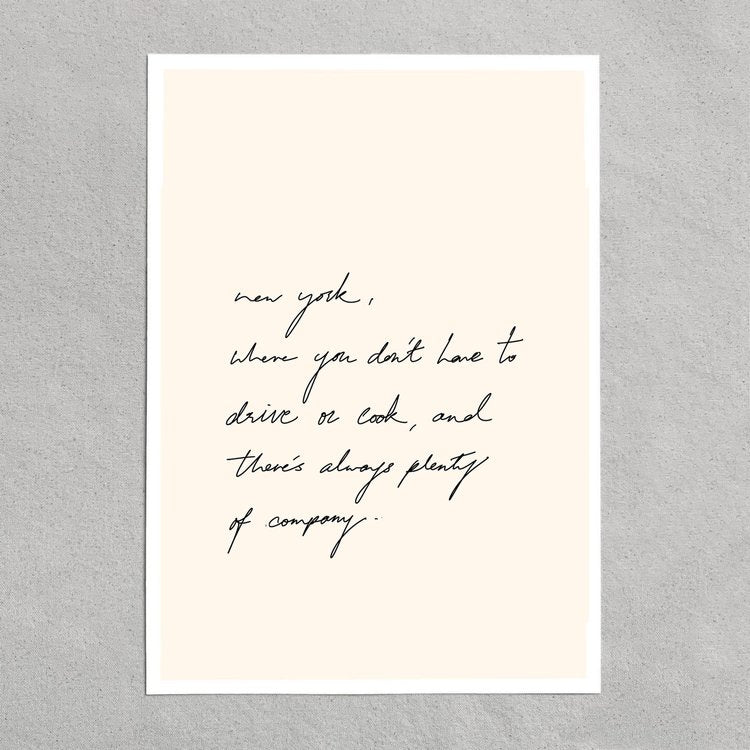 new york,
where you don't have to
drive or cook, and
there's always plenty
of company.